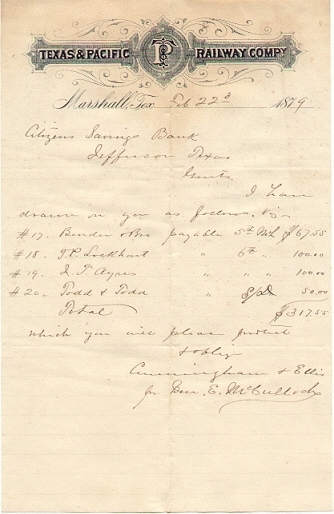 TEXAS & PACIFIC TP RAILWAY COMPY
Marshall, Tex. Feb 22d 1879
Citizens Savings Bank
Jefferson Texas
Gents
I have
drawn on you as follows, viz
#17. Bender & Bro payable 5th Mch $67.55
#18. T.P. Lockhart " 6th " 100.00
#19. J. T. Ayres " " " 100.00
#20. Todd & Todd " 50.00
Total $317.55
which you will please protect
& oblige
Cunningham & Ellis
for E. McCulloch